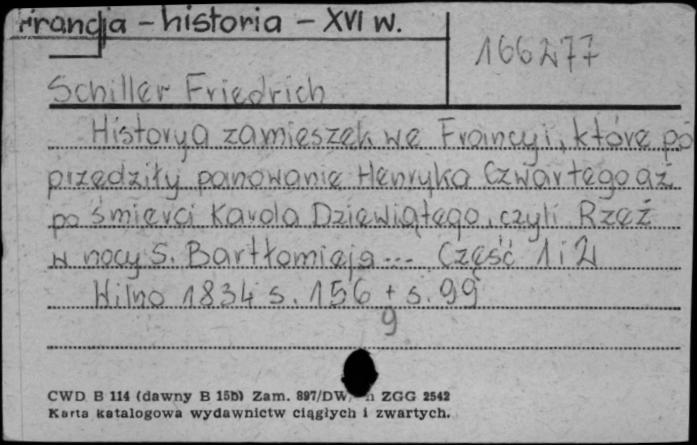 Francja - historia - XVI w.
166277
Schiller Friedrich
Historya zamieszek we Francyi, które po
przedziły panowanie Henryka Czwartego aż
po śmierci Karola Dziewiątego, czyli Rzeź
w nocy S. Bartłomieja... Część 1 i 2
Wilno 1834 s. 156 + s. 99
9
CWD B 114 (dawny B 15b) Zam. 897/DW/ ZGG 2542
Karta katalogowa wydawnictw ciągłych i zwartych.